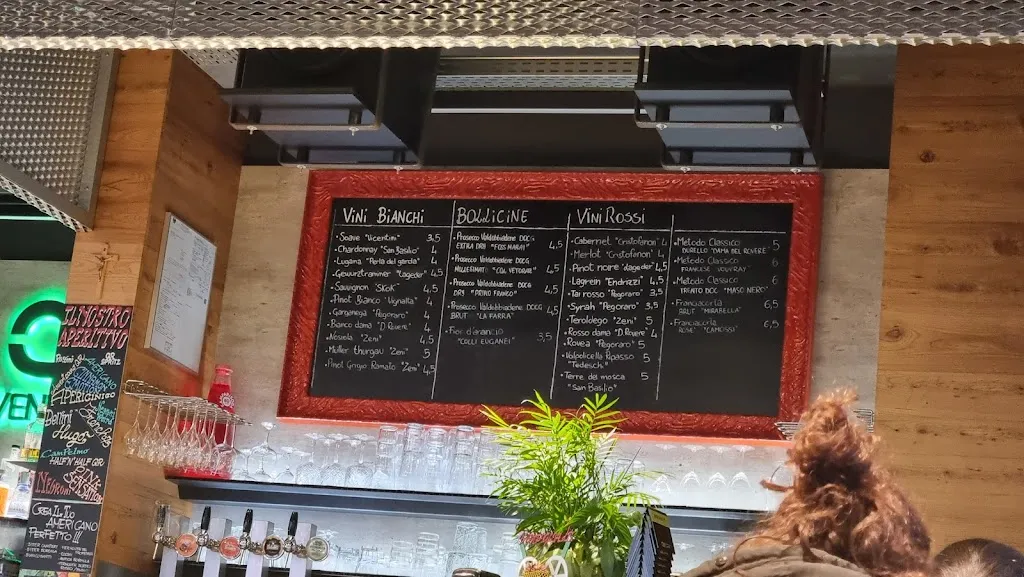 VINI BIANCHI
• Soave "Vicentini" 3,5
• Chardonnay "San Basilio" 4
• Lugana "Perla del garda" 4
• Gewurztraminer "Lageder" 4,5
• Sauvignon "SKOK" 4,5
• Pinot Bianco "Vignalta" 4
• Garganega "Pegoraro" 4
• Bianco dama "D. Rovere" 4
• Nosiola "Zeni" 4,5
• Müller thurgau "Zeni" 5
• Pinot Grigio Ramato "Zeni" 4,5
BOLLICINE
• Prosecco Valdobbiadene DOCG
EXTRA DRY "FOSS MARAI" 4,5
• Prosecco Valdobbiadene DOCG
MILLESIMATO "COL VETORAZ" 4,5
• Prosecco Valdobbiadene DOCG
DRY "PRIMO FRANCO" 4,5
• Prosecco Valdobbiadene DOCG
BRUT "LA FARRA" 4
• Fior d'arancio
"COLLI EUGANEI" 3,5
VINI ROSSI
• Cabernet "Cristofanon" 4
• Merlot "Cristofanon" 4
• Pinot nore "Lageder" 4,5
• Lagrein "Endrizzi" 4,5
• Tai rosso "Pegoraro" 3,5
• Syrah "Pegoraro" 3,5
• Teroldego "Zeni" 5
• Rosso dama "D. Rovere" 4
• Rovea "Pegoraro" 5
• Valpolicella Ripasso 5
"Tedeschi"
• Terre del mosca 5
"San Basilio"
• Metodo Classico 5
DURELLO "DAMA DEL ROVERE"
• Metodo Classico 6
FRANCESE VOUVRAY"
• Metodo Classico 6
TRENTO DOC "MASO NERO"
• Franciacorta 6,5
BRUT "MIRABELLA"
• Franciacorta 6,5
ROSE' "CAMOSSI"
IL NOSTRO
APERITIVO
SPRITZ
AMERICANO
APERICINISTO
Bellini
Hugo
CAMPELMO
HALF'N'HALF GIN
NEGRONI
CREA IL TUO
AMERICANO
PERFETTO!!!
VEN